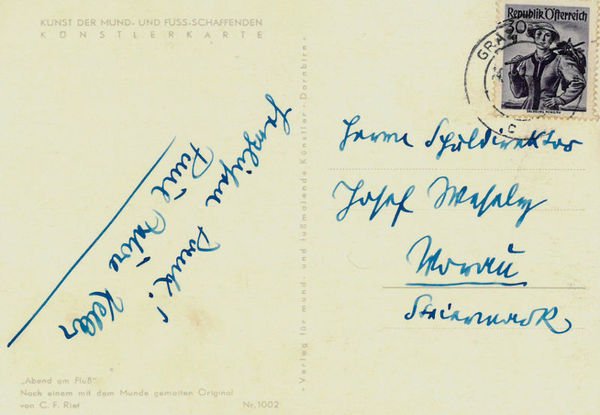 KUNST DER MUND- UND FUSS-SCHAFFENDEN
KÜNSTLERKARTE
Republik Österreich
30
GRAZ
C
Herzlichen
Dank!
Keller
Herrn Schuldirektor
Josef Wesely
Vorau
Steiermark
• Verlag für mund- und fußmalende Künstler • Dornbirn •
„Abend am Fluß“
Nach einem mit dem Munde gemalten Original
von C. F. Riet
Nr. 1002